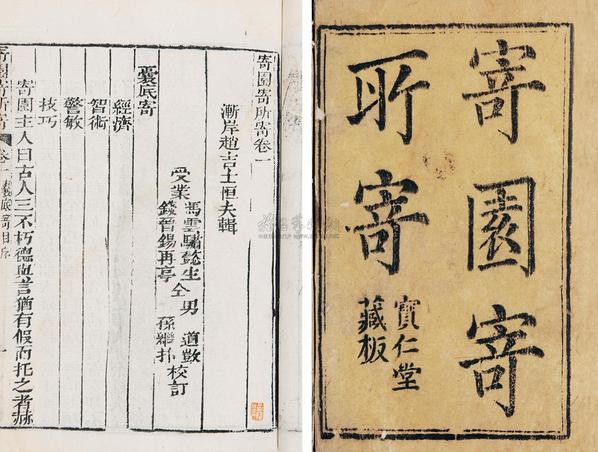 寄園寄
所寄
寳仁堂
藏板
寄園寄所寄卷一
漸岸趙吉士恒夫輯
受業馮雲驌懿生
錢晉錫再亭
仝男道敳
孫繼抃
校訂
囊底寄
經濟
智術
警敏
技巧
寄園主人曰古人三不朽德與言猶有假而托之者赫
寄園寄所寄
卷一囊底寄目序